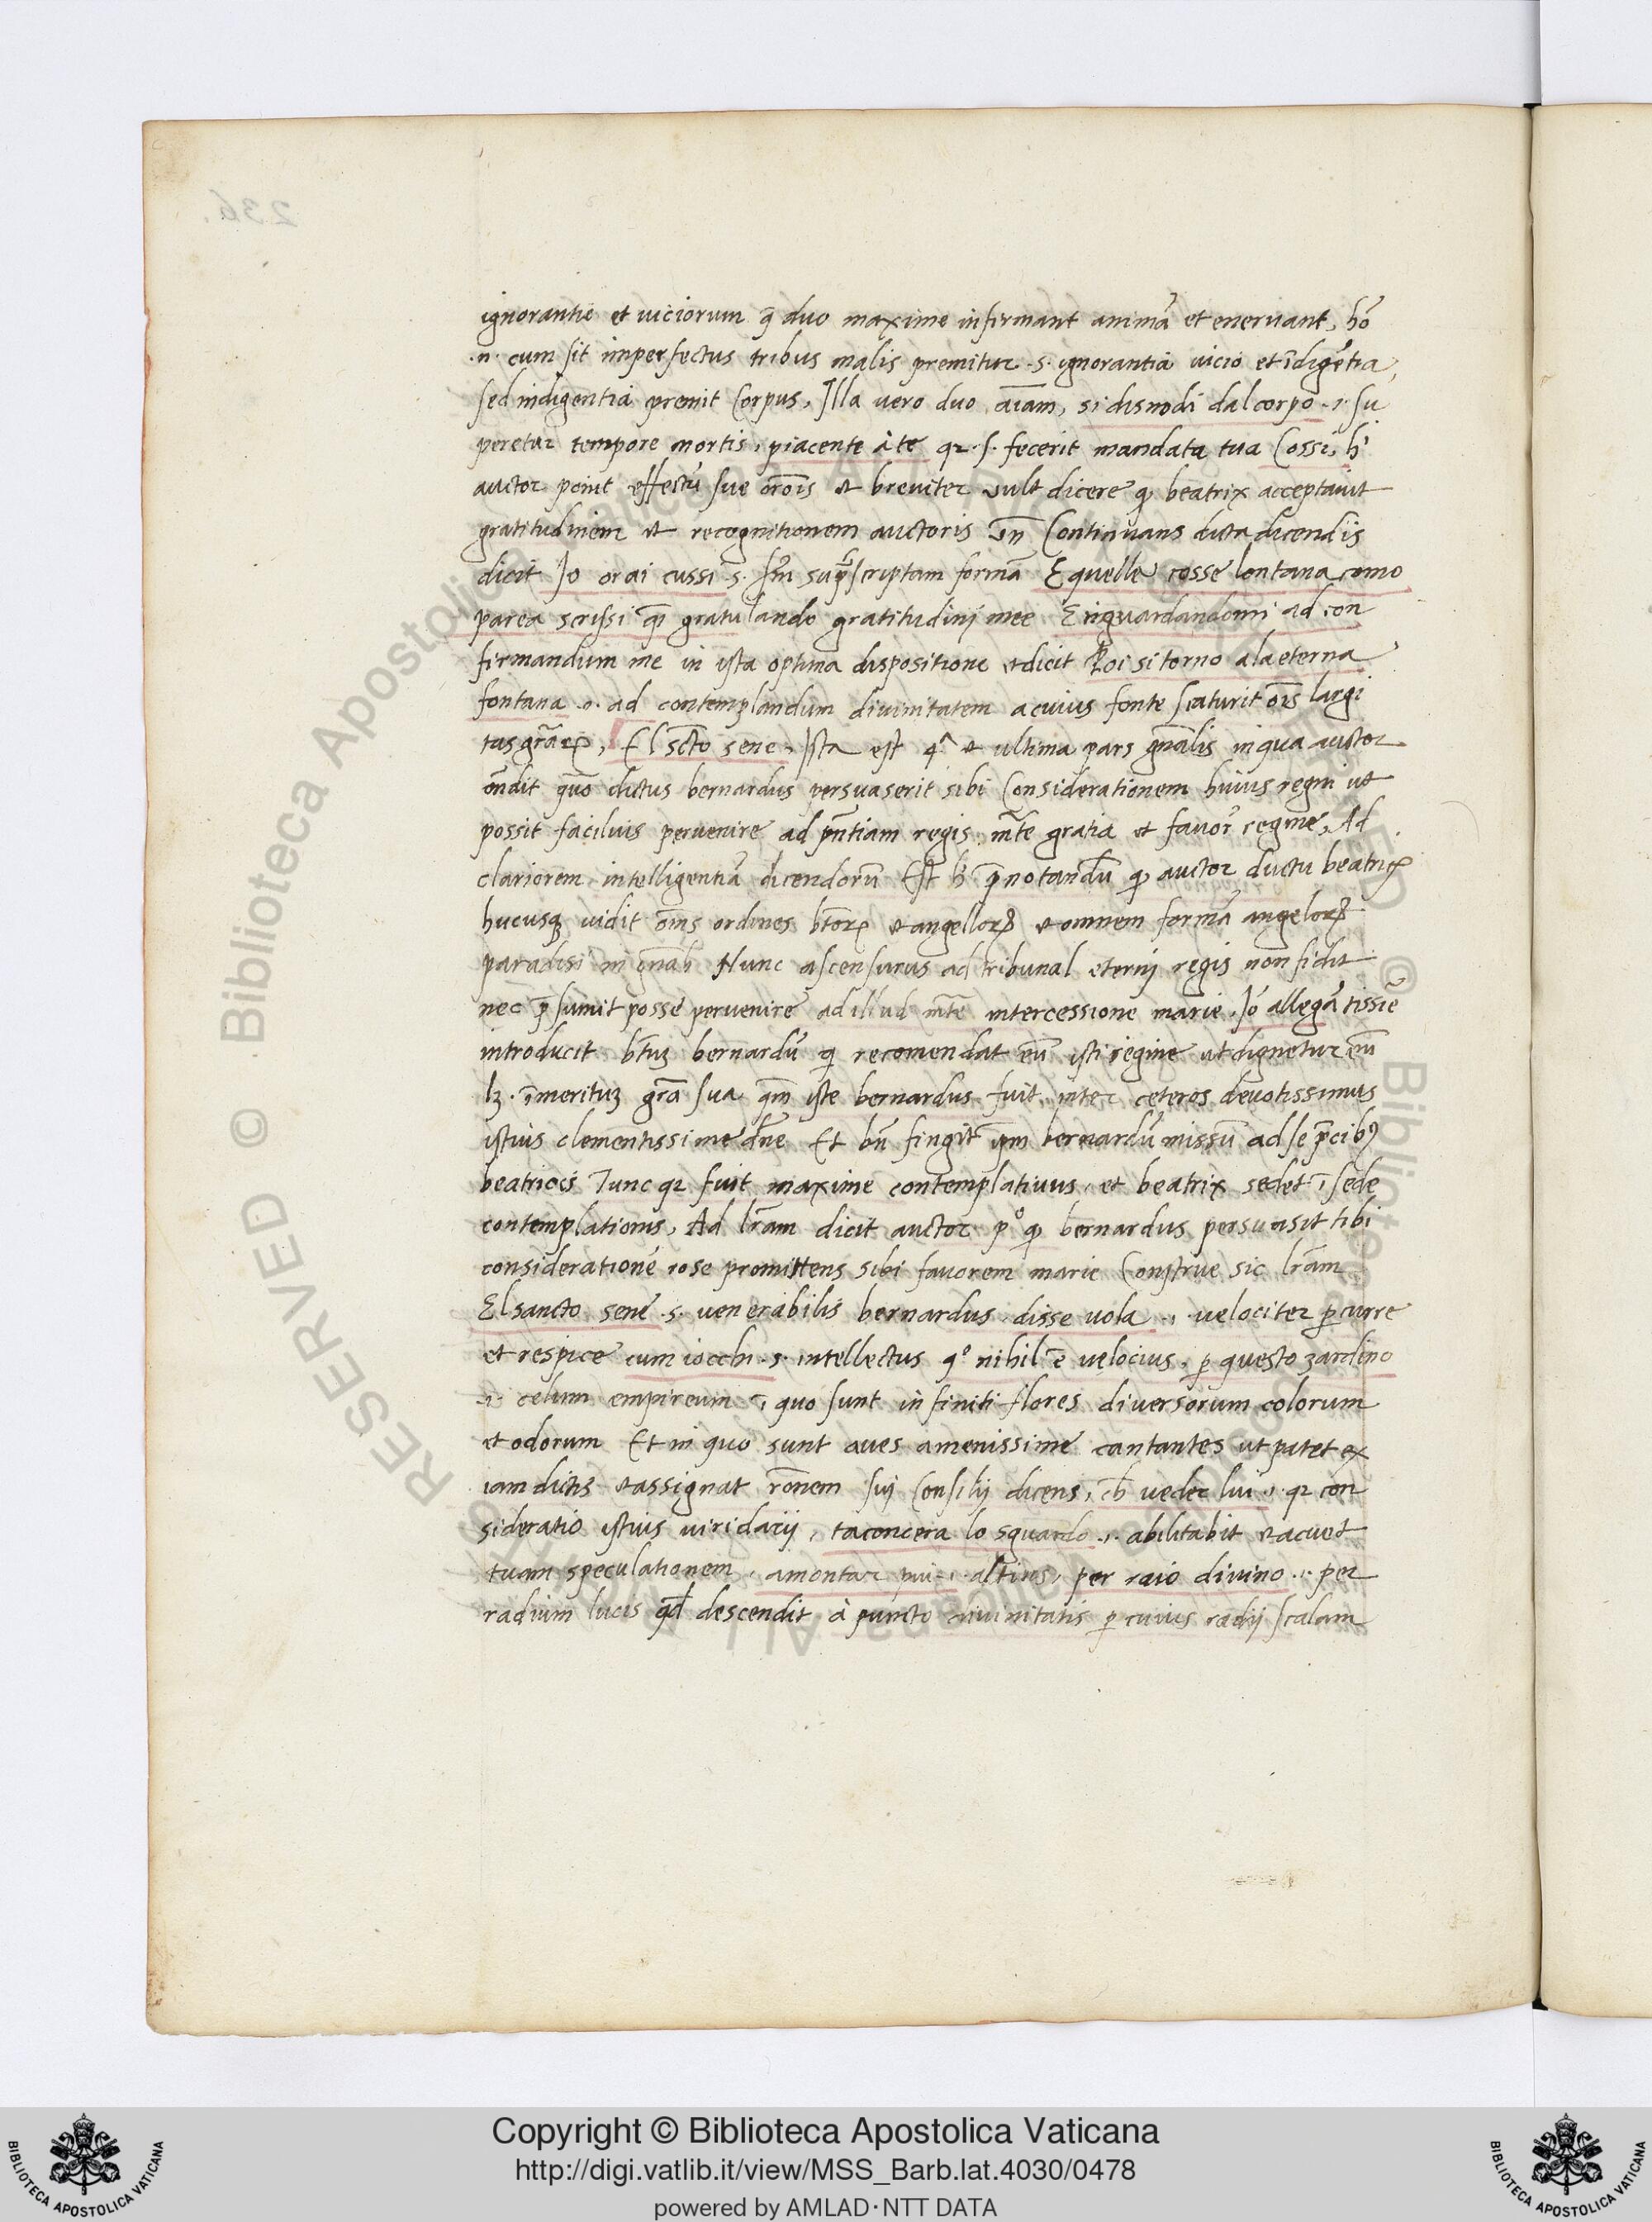 ignorantie et viciorum q̄ duo maxime infirmant animā et enervant, hō
.n. cum sit imperfectus tribus malis premitur .s. ignorantia vicio et īdigētia,
sed indigentia premit Corpus, Illa vero duo aīam, si disnodi dal corpo .i. su
peretur tempore mortis, piacente à te qr .s. fecerit mandata tua Cossi, hi
auctor ponit effectū sue orōis et breviter vult dicere q beatrix acceptavit
gratitudinem et recognitionem auctoris un̄ Continuans dicta dicendis
dicit Jo orai cussi .s. scm̄ supscriptam formā E quelle cosse lontana como
parea scrissi q̄i gratulando gratitudinj mee E riguardandomi ad con
firmandum me in ista optima dispositione et dicit Poi si torno ala eterna
fontana .i. ad contemplandum divinitatem a cuius fonte scaturit ōis largi
tas grāꝝ, El scto sene, Ista est 4ᵃ et ultima pars gnālis in qua auctor
ōndit quō dictus bernardus persuaserit sibi Considerationem huius regni ut
possit facilius pervenire ad pn̄tiam regis mn̄te gratia et favorē regine, Ad
clariorem intelligentiā dicendorū Est h̄ prenotandū q auctor ductu beatricꝭ
hucusqꝫ vidit ōms ordines btorꝝ et angellorꝝ et omnem formā angelorꝝ
paradisi in gnāli Nunc ascensurus ad tribunal eternj regis non fidit
nec p̄sumit posse pervenire ad illud mn̄te intercessione marie. Jō allegātissiē
introducit btuꝫ bernardū q recomendat eū isti regine ut dignetur eū
lꝫ. īmerituꝫ grā sua qm̄ iste bernardus fuit inter ceteros devotissimus
istius clementissime dn̄e Et bn̄ fingit ipm̄ bernardū missū ad se p̄cibꝰ
beatricis Tunc qr fuit maxime contemplativus, et beatrix sedet ī sede
contemplationis, Ad lr̄am dicit auctor pº q bernardus persuasit tibi
consideratione rose promittens sibi favorem marie Construe sic lr̄am
El sancto sene .s. venerabilis bernardus disse vola .i. velociter pcurre
et respice cum iocchi .s. intellectus qº nihil ē velocius, p questo zardino
.i. celum empireum ī quo sunt infiniti flores diversorum colorum
et odorum Et in quo sunt aves amenissime cantantes ut patet ex
iam dictis et assignat rōnem suj Consilij dicens, ch̄ veder lui .i. qr con
sideratio istius viridarij, taconcera lo sguardo .i. abilitabit et acuet
tuam speculationem, amontar piu .i. altius, per raio divino .i. per
radium lucis qd̄ descendit à puncto divinitatis p cuius radij scalam
236.
© Biblioteca Apostolica Vaticana ALL RIGHTS RESERVED
Copyright © Biblioteca Apostolica Vaticana
http://digi.vatlib.it/view/MSS_Barb.lat.4030/0478
powered by AMLAD·NTT DATA
BIBLIOTECA APOSTOLICA VATICANA
BIBLIOTECA APOSTOLICA VATICANA